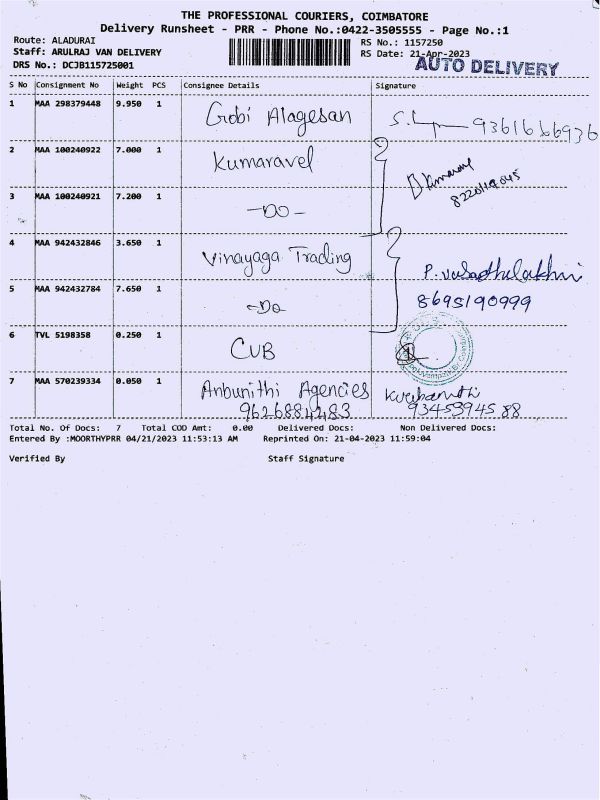 THE PROFESSIONAL COURIERS, COIMBATORE
Delivery Runsheet - PRR - Phone No.:0422-3505555 - Page No.:1
Route: ALADURAI
RS No.: 1157250
Staff: ARULRAJ VAN DELIVERY
RS Date: 21-Apr-2023
DRS No.: DCJB115725001
AUTO DELIVERY
S No Consignment No Weight PCS Consignee Details Signature
1 MAA 298379448 9.950 1 Gobi Alagesan 9361666936
2 MAA 100240922 7.000 1 Kumaravel
3 MAA 100240921 7.200 1 -DO-
4 MAA 942432846 3.650 1 Vinayaga Trading
5 MAA 942432784 7.650 1 -Do 8695190999
6 TVL 5198358 0.250 1 CUB
7 MAA 570239334 0.050 1 Anbunithi Agencies
9626884483 9345394588
Total No. Of Docs: 7 Total COD Amt: 0.00 Delivered Docs: Non Delivered Docs:
Entered By :MOORTHYPRR 04/21/2023 11:53:13 AM Reprinted On: 21-04-2023 11:59:04
Verified By Staff Signature